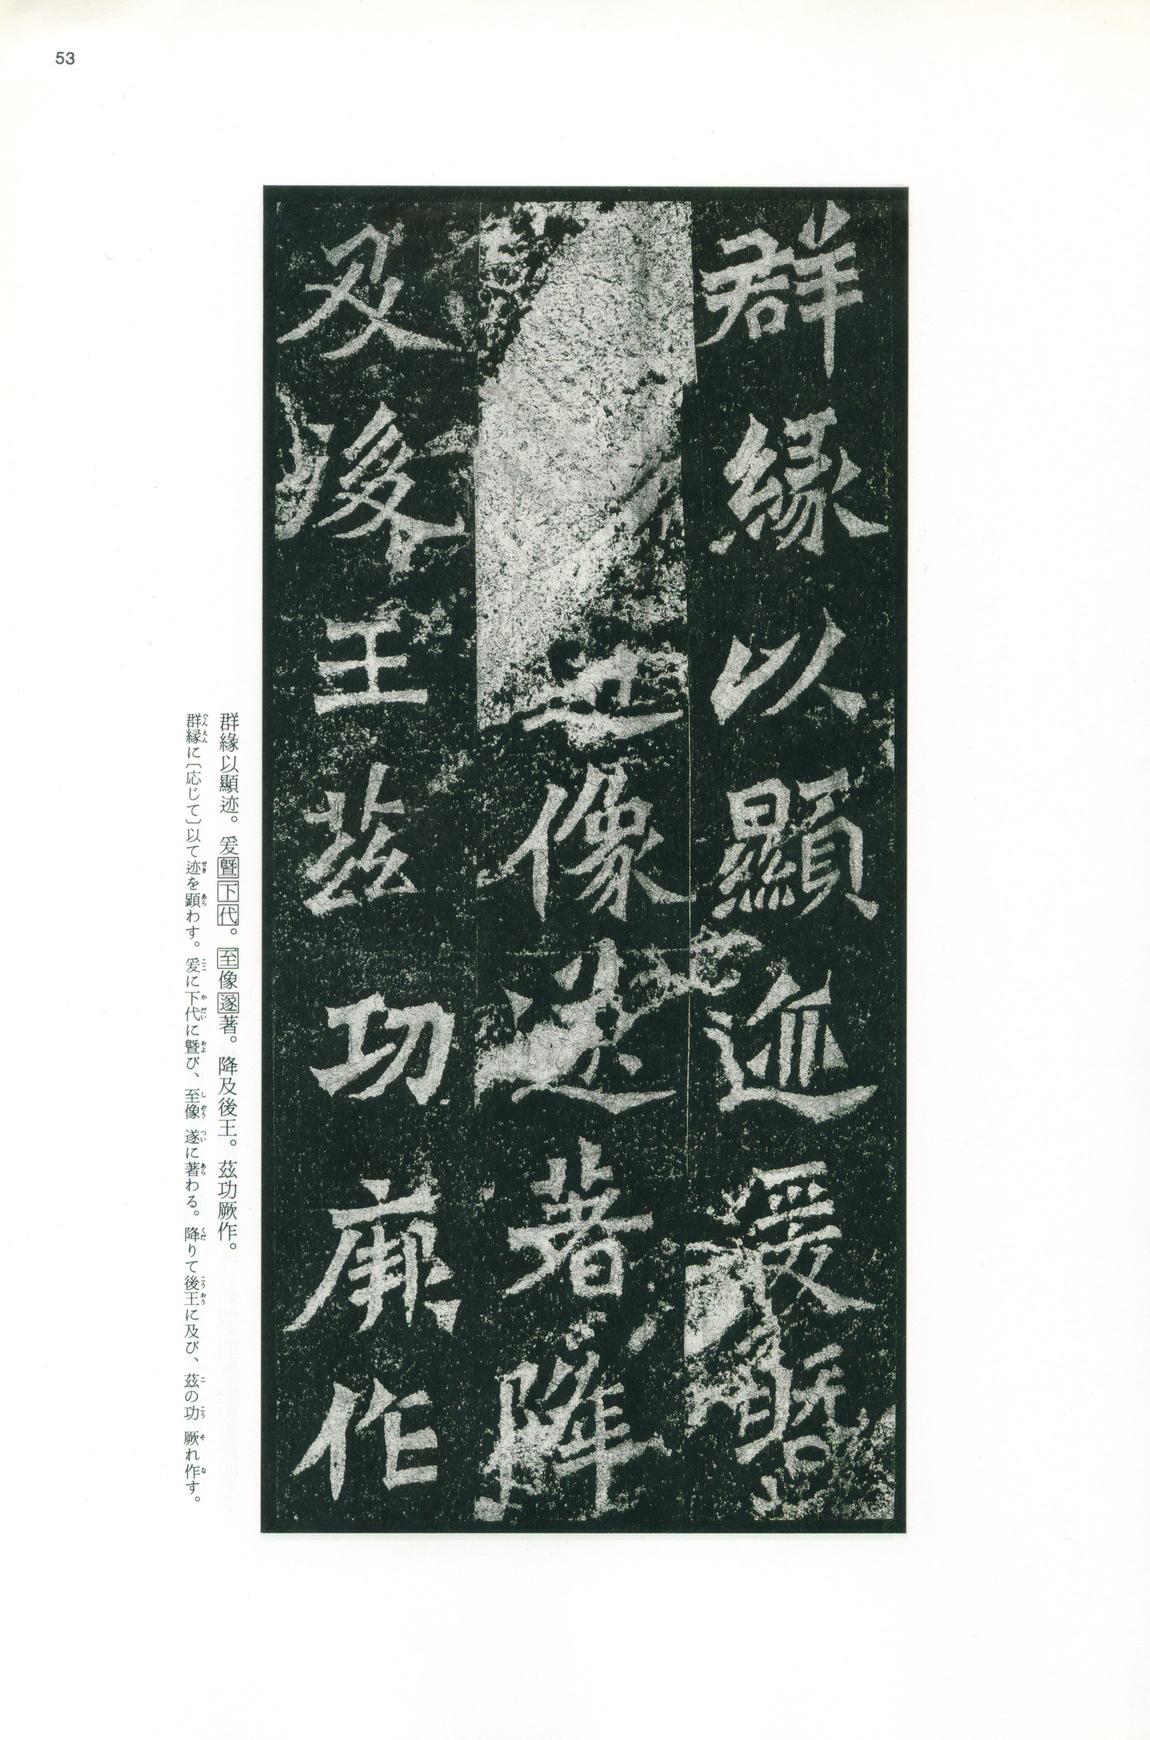 53
群緣以顯迹爰暨
像遂著降
及後王茲功厥作
群緣以顯迹。爰暨下代。至像遂著。降及後王。茲功厥作。
群縁に〔応じて〕以て迹を顕わす。爰に下代に曁び、至像遂に著わる。降りて後王に及び、茲の功厥れ作す。